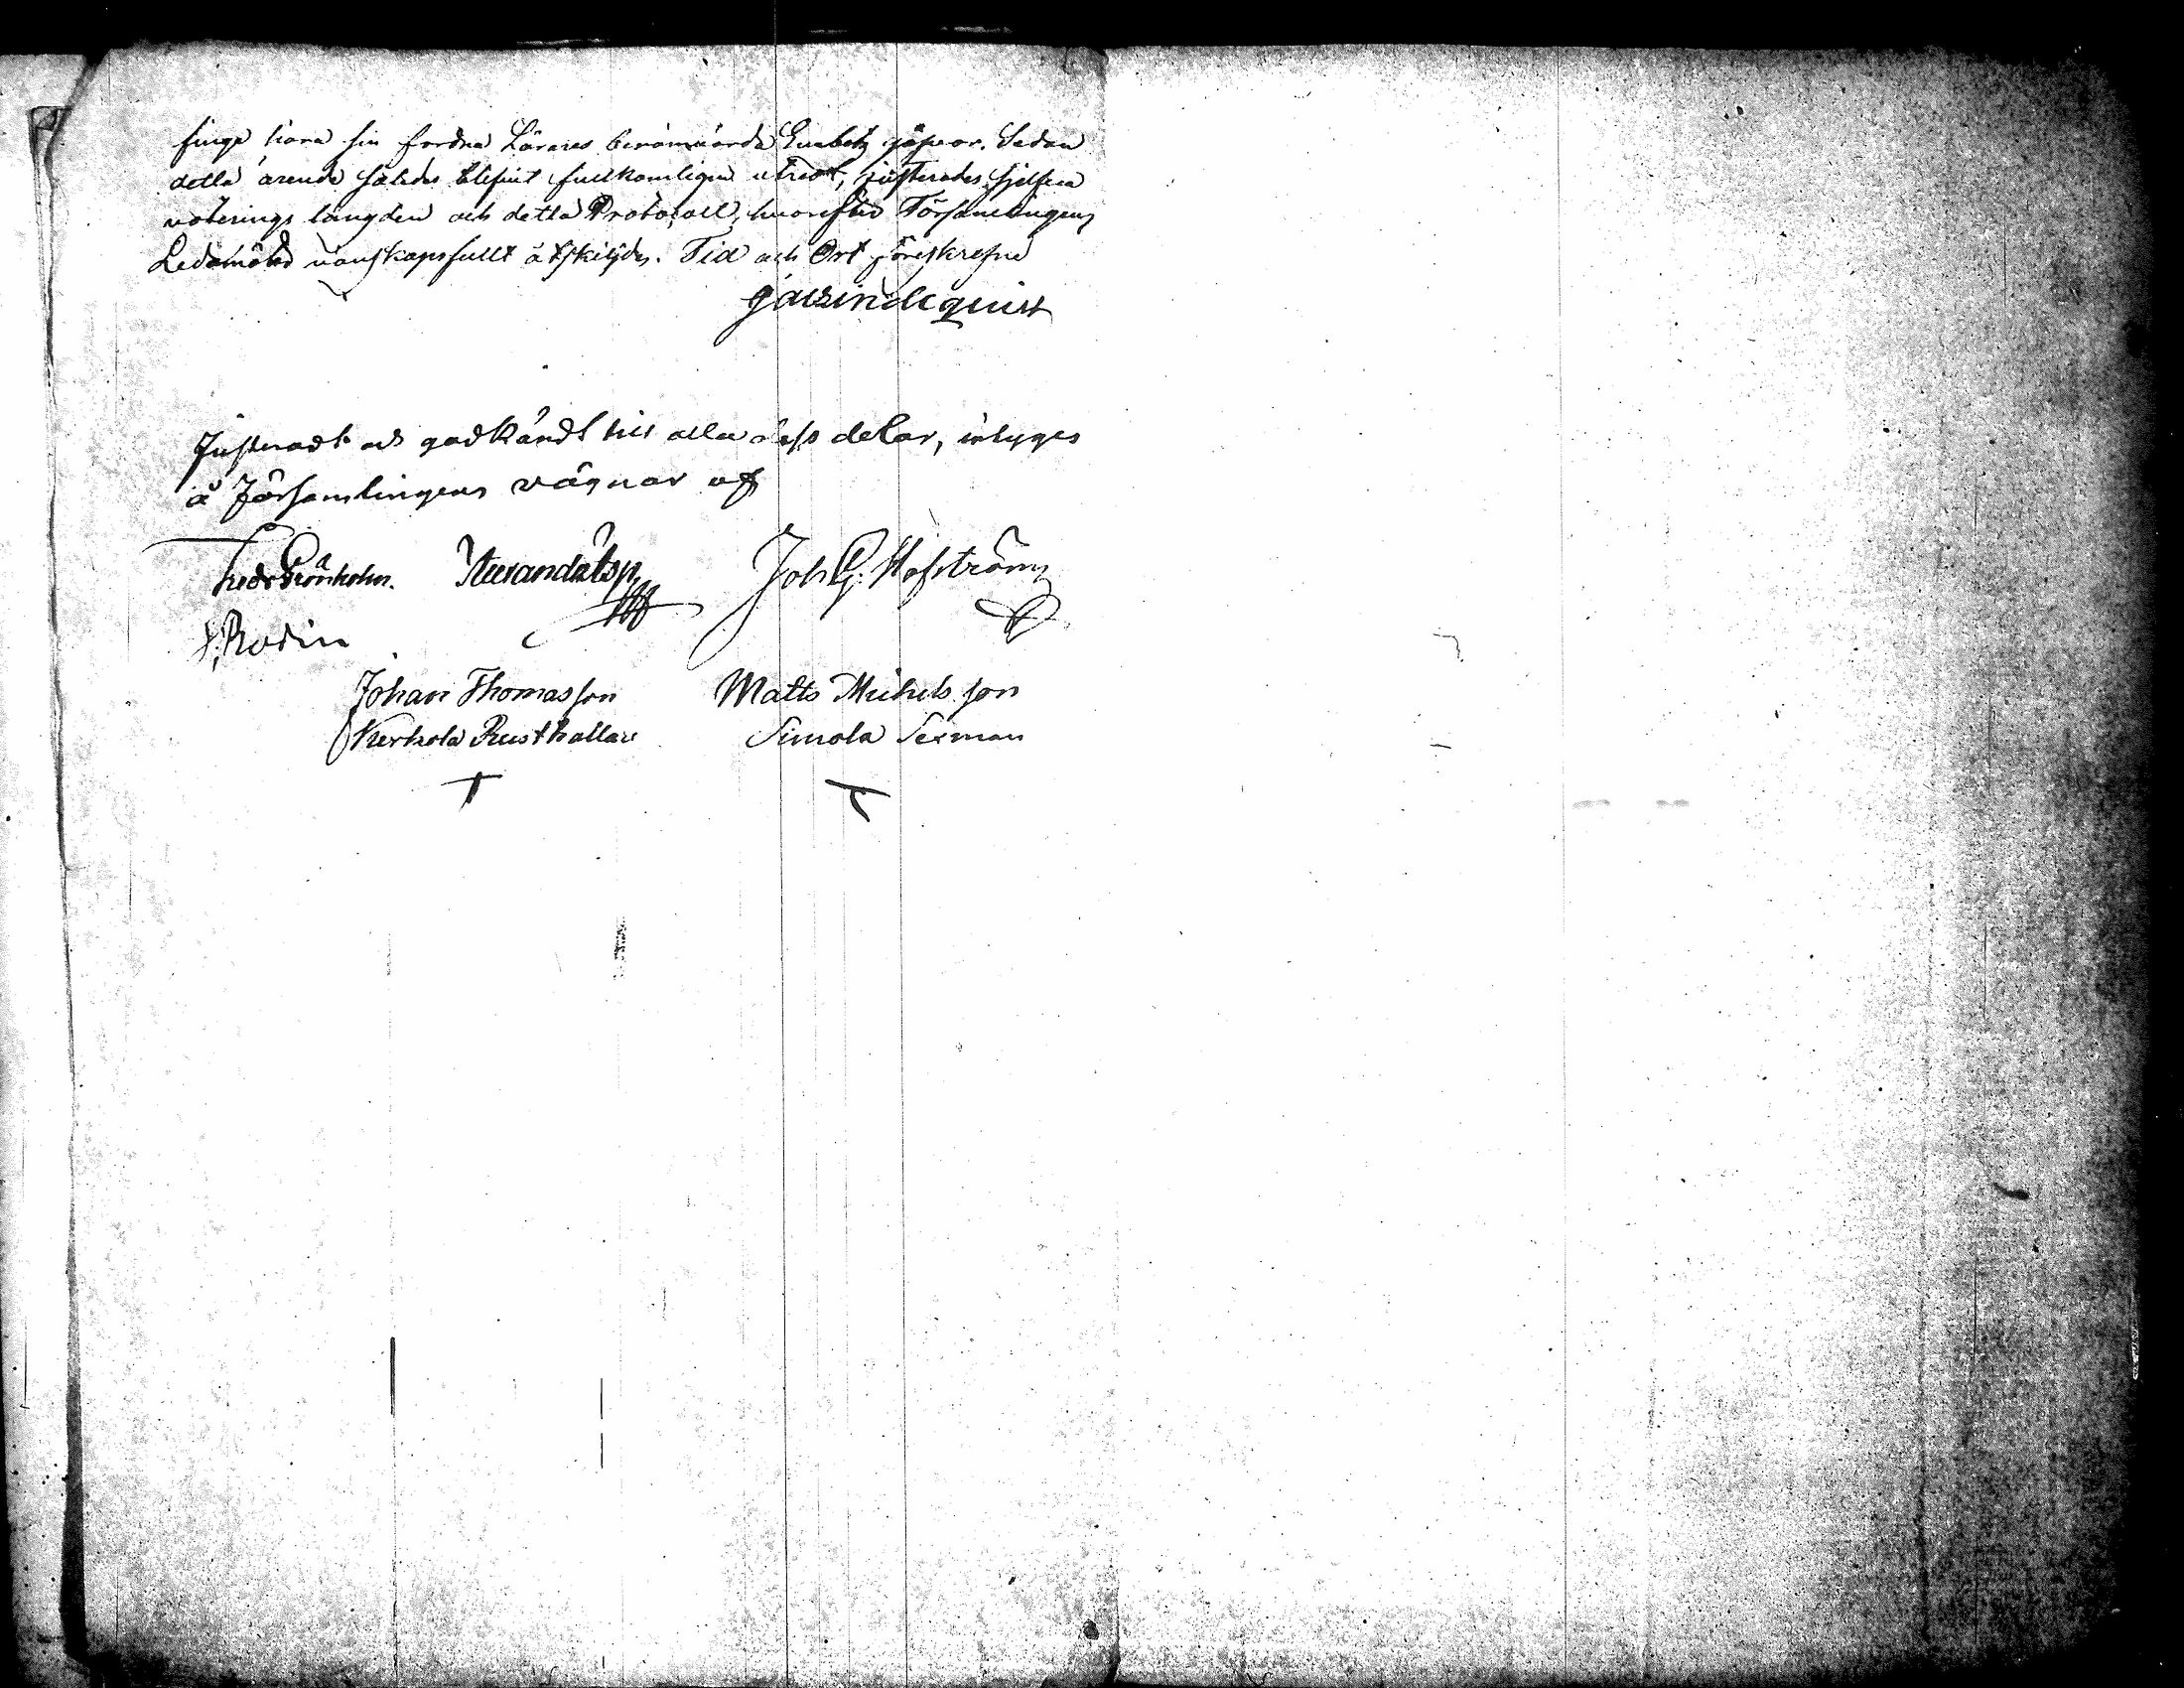 finge höra sin fordna Lärares berömvärda Embets gåfvor. Sedan
detta ärende således blifvit fullkomligen utredt, justerades sjelfva
voterings längden och detta Protocoll, hvarefter Församlingens
Ledamöter vänskapsfullt åtskiljdes. Tid och Ort föreskrefne
Justeradt och godkändt till alla dess delar, intyges
å Församlingens vägnar af
Fredr Grönholm. Joh G. Hofström
Rodin
Johan Thomasson Matts Michelsson
Kerkola Rusthållare Simola Sexman